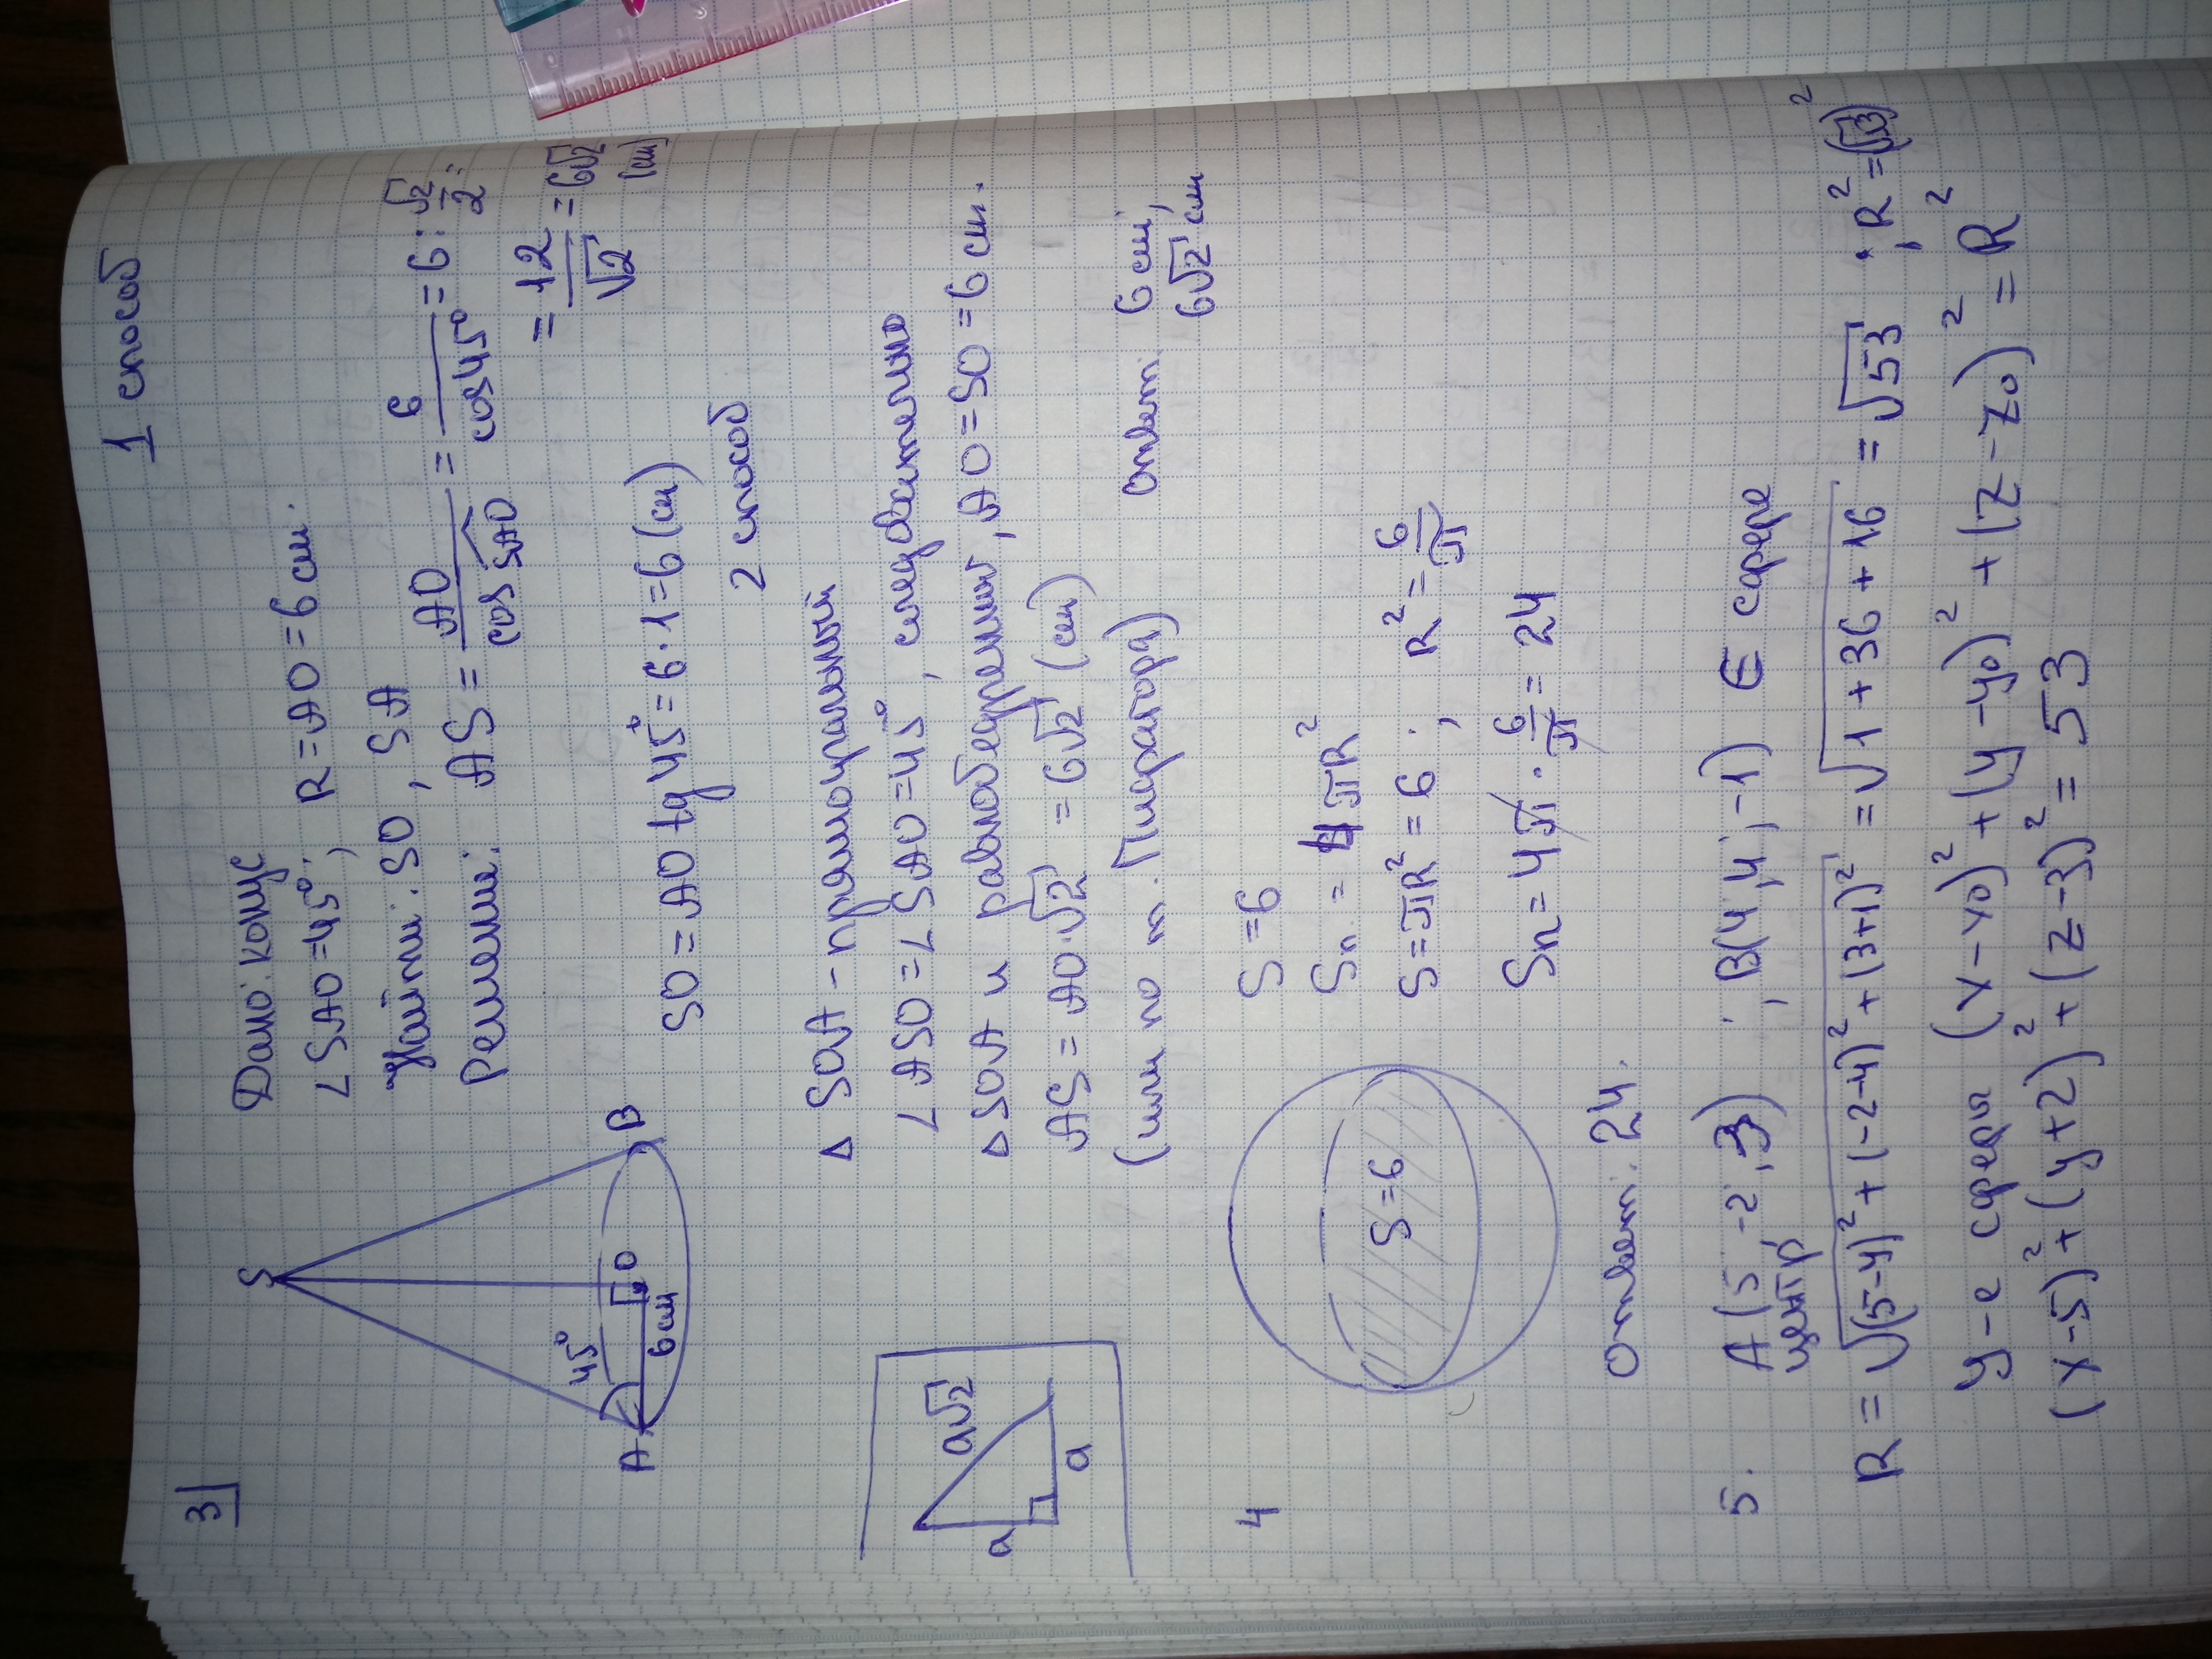 3
1 способ
Дано: конус
∠SAO=45°; R=AO=6 см.
Найти: SO, SA
Решение: AS = AO/cos SAO = 6/cos45° = 6 : √2/2 =
= 12/√2 = 6√2 (см)
SO = AO tg 45° = 6·1 = 6 (см)
2 способ
△ SOA - прямоугольный
∠ASO = ∠SAO = 45°, следовательно
△ SOA и равнобедренный, AO = SO = 6 см.
AS = AO·√2 = 6√2 (см)
(или по т. Пифагора)
Ответ: 6 см;
6√2 см
S
45°
A
6 см
O
B
a
a√2
a
4
S=6
S=6
Sп = 4πR²
S = πR² = 6 ; R² = 6/π
Sп = 4π · 6/π = 24
Ответ: 24.
5. A (5; -2; 3) ; B(4; 4; -1) ∈ сфере
центр
R = √(5-4)² + (-2-4)² + (3+1)² = √1 + 36 + 16 = √53 ; R² = (√53)²
у-е сферы (x-x₀)² + (y-y₀)² + (z-z₀)² = R²
(x-5)² + (y+2)² + (z-3)² = 53